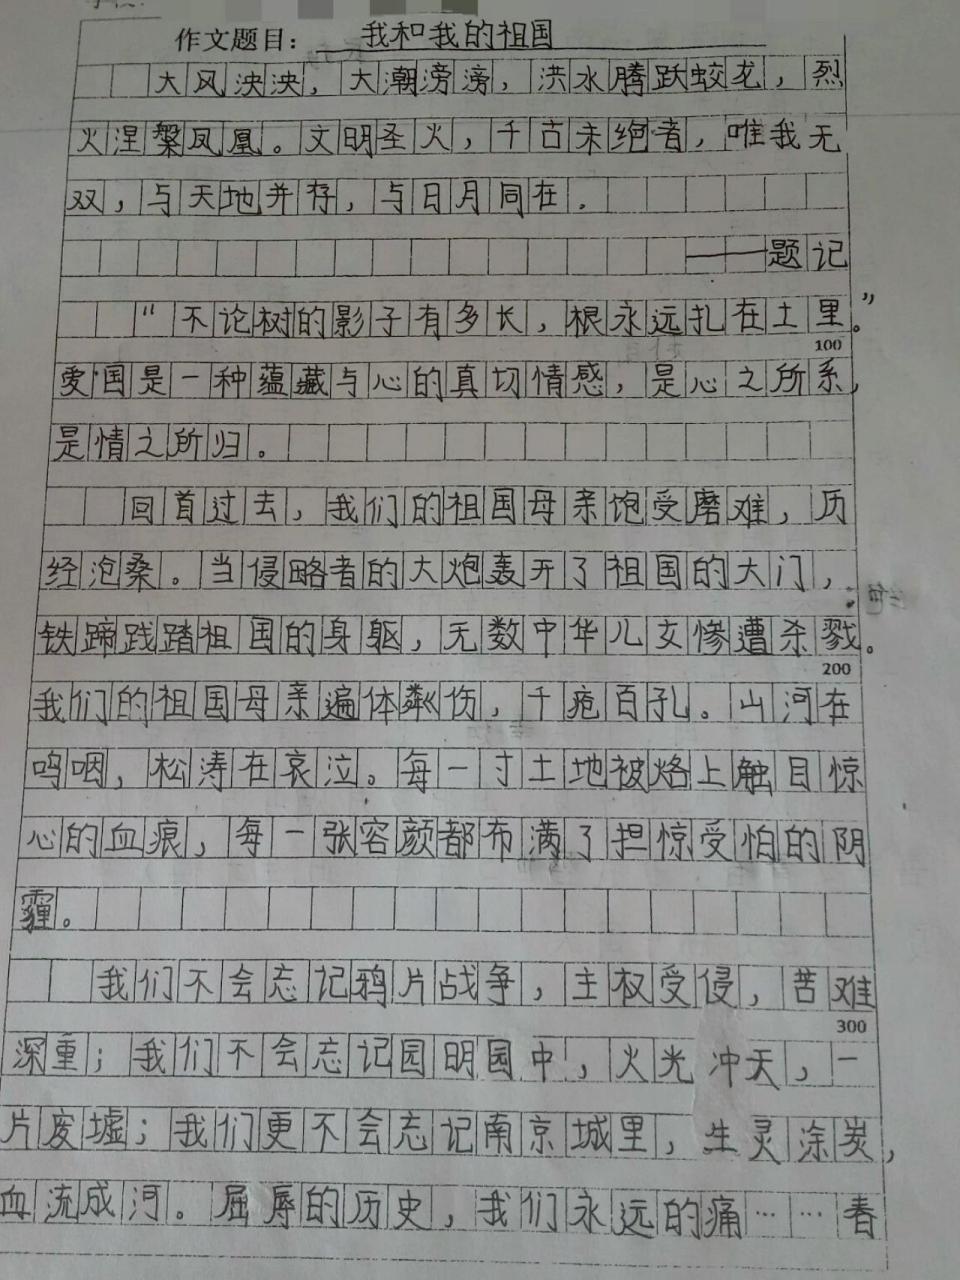 作文题目：我和我的祖国
大风泱泱，大潮滂滂，洪水腾跃蛟龙，烈
火涅槃凤凰。文明圣火，千古未绝者，唯我无
双，与天地并存，与日月同在.
——题记
“不论树的影子有多长，根永远扎在土里。”
100
爱国是一种蕴藏与心的真切情感，是心之所系，
是情之所归。
回首过去，我们的祖国母亲饱受磨难，历
经沧桑。当侵略者的大炮轰开了祖国的大门，
铁蹄践踏祖国的身躯，无数中华儿女惨遭杀戮。
200
我们的祖国母亲遍体粼伤，千疮百孔。山河在
呜咽，松涛在哀泣。每一寸土地被烙上触目惊
心的血痕，每一张容颜都布满了担惊受怕的阴
霾。
我们不会忘记鸦片战争，主权受侵，苦难
300
深重；我们不会忘记园明园中，火光冲天，一
片废墟；我们更不会忘记南京城里，生灵涂炭，
血流成河。屈辱的历史，我们永远的痛……春